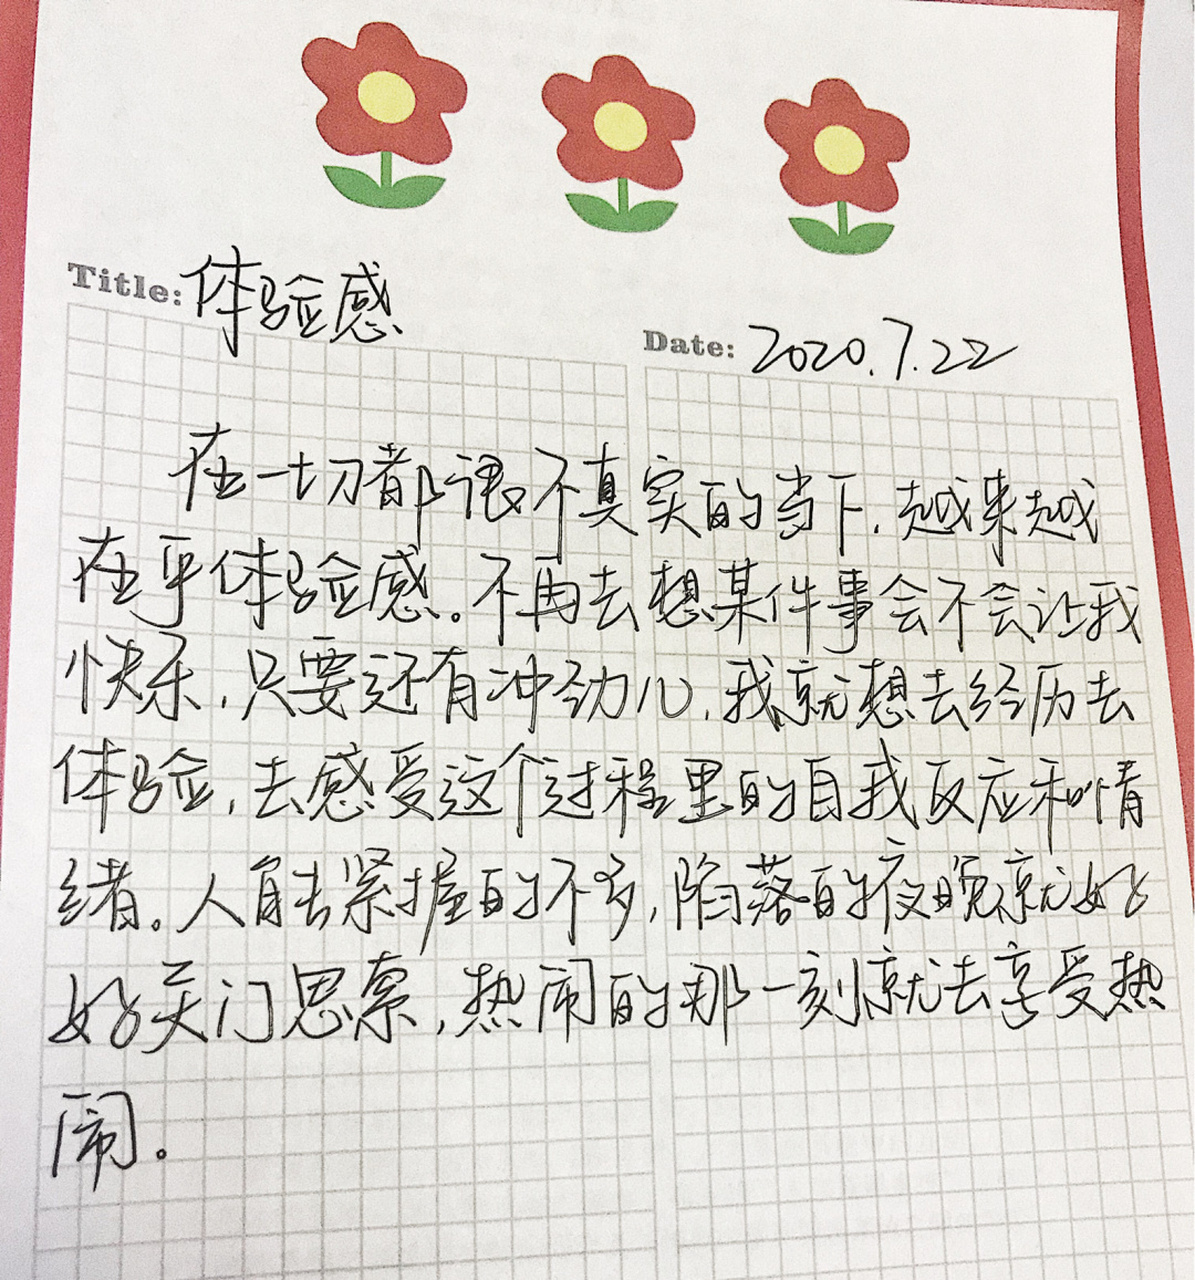 Title: 体验感
Date: 2020.7.22
在一切都很不真实的当下,越来越
在乎体验感。不再去想某件事会不会让我
快乐,只要还有冲劲儿,我就想去经历去
体验,去感受这个过程里的自我反应和情
绪。人能去紧握的不多,陷落的夜晚就好
好关门思索,热闹的那一刻就去享受热
闹。